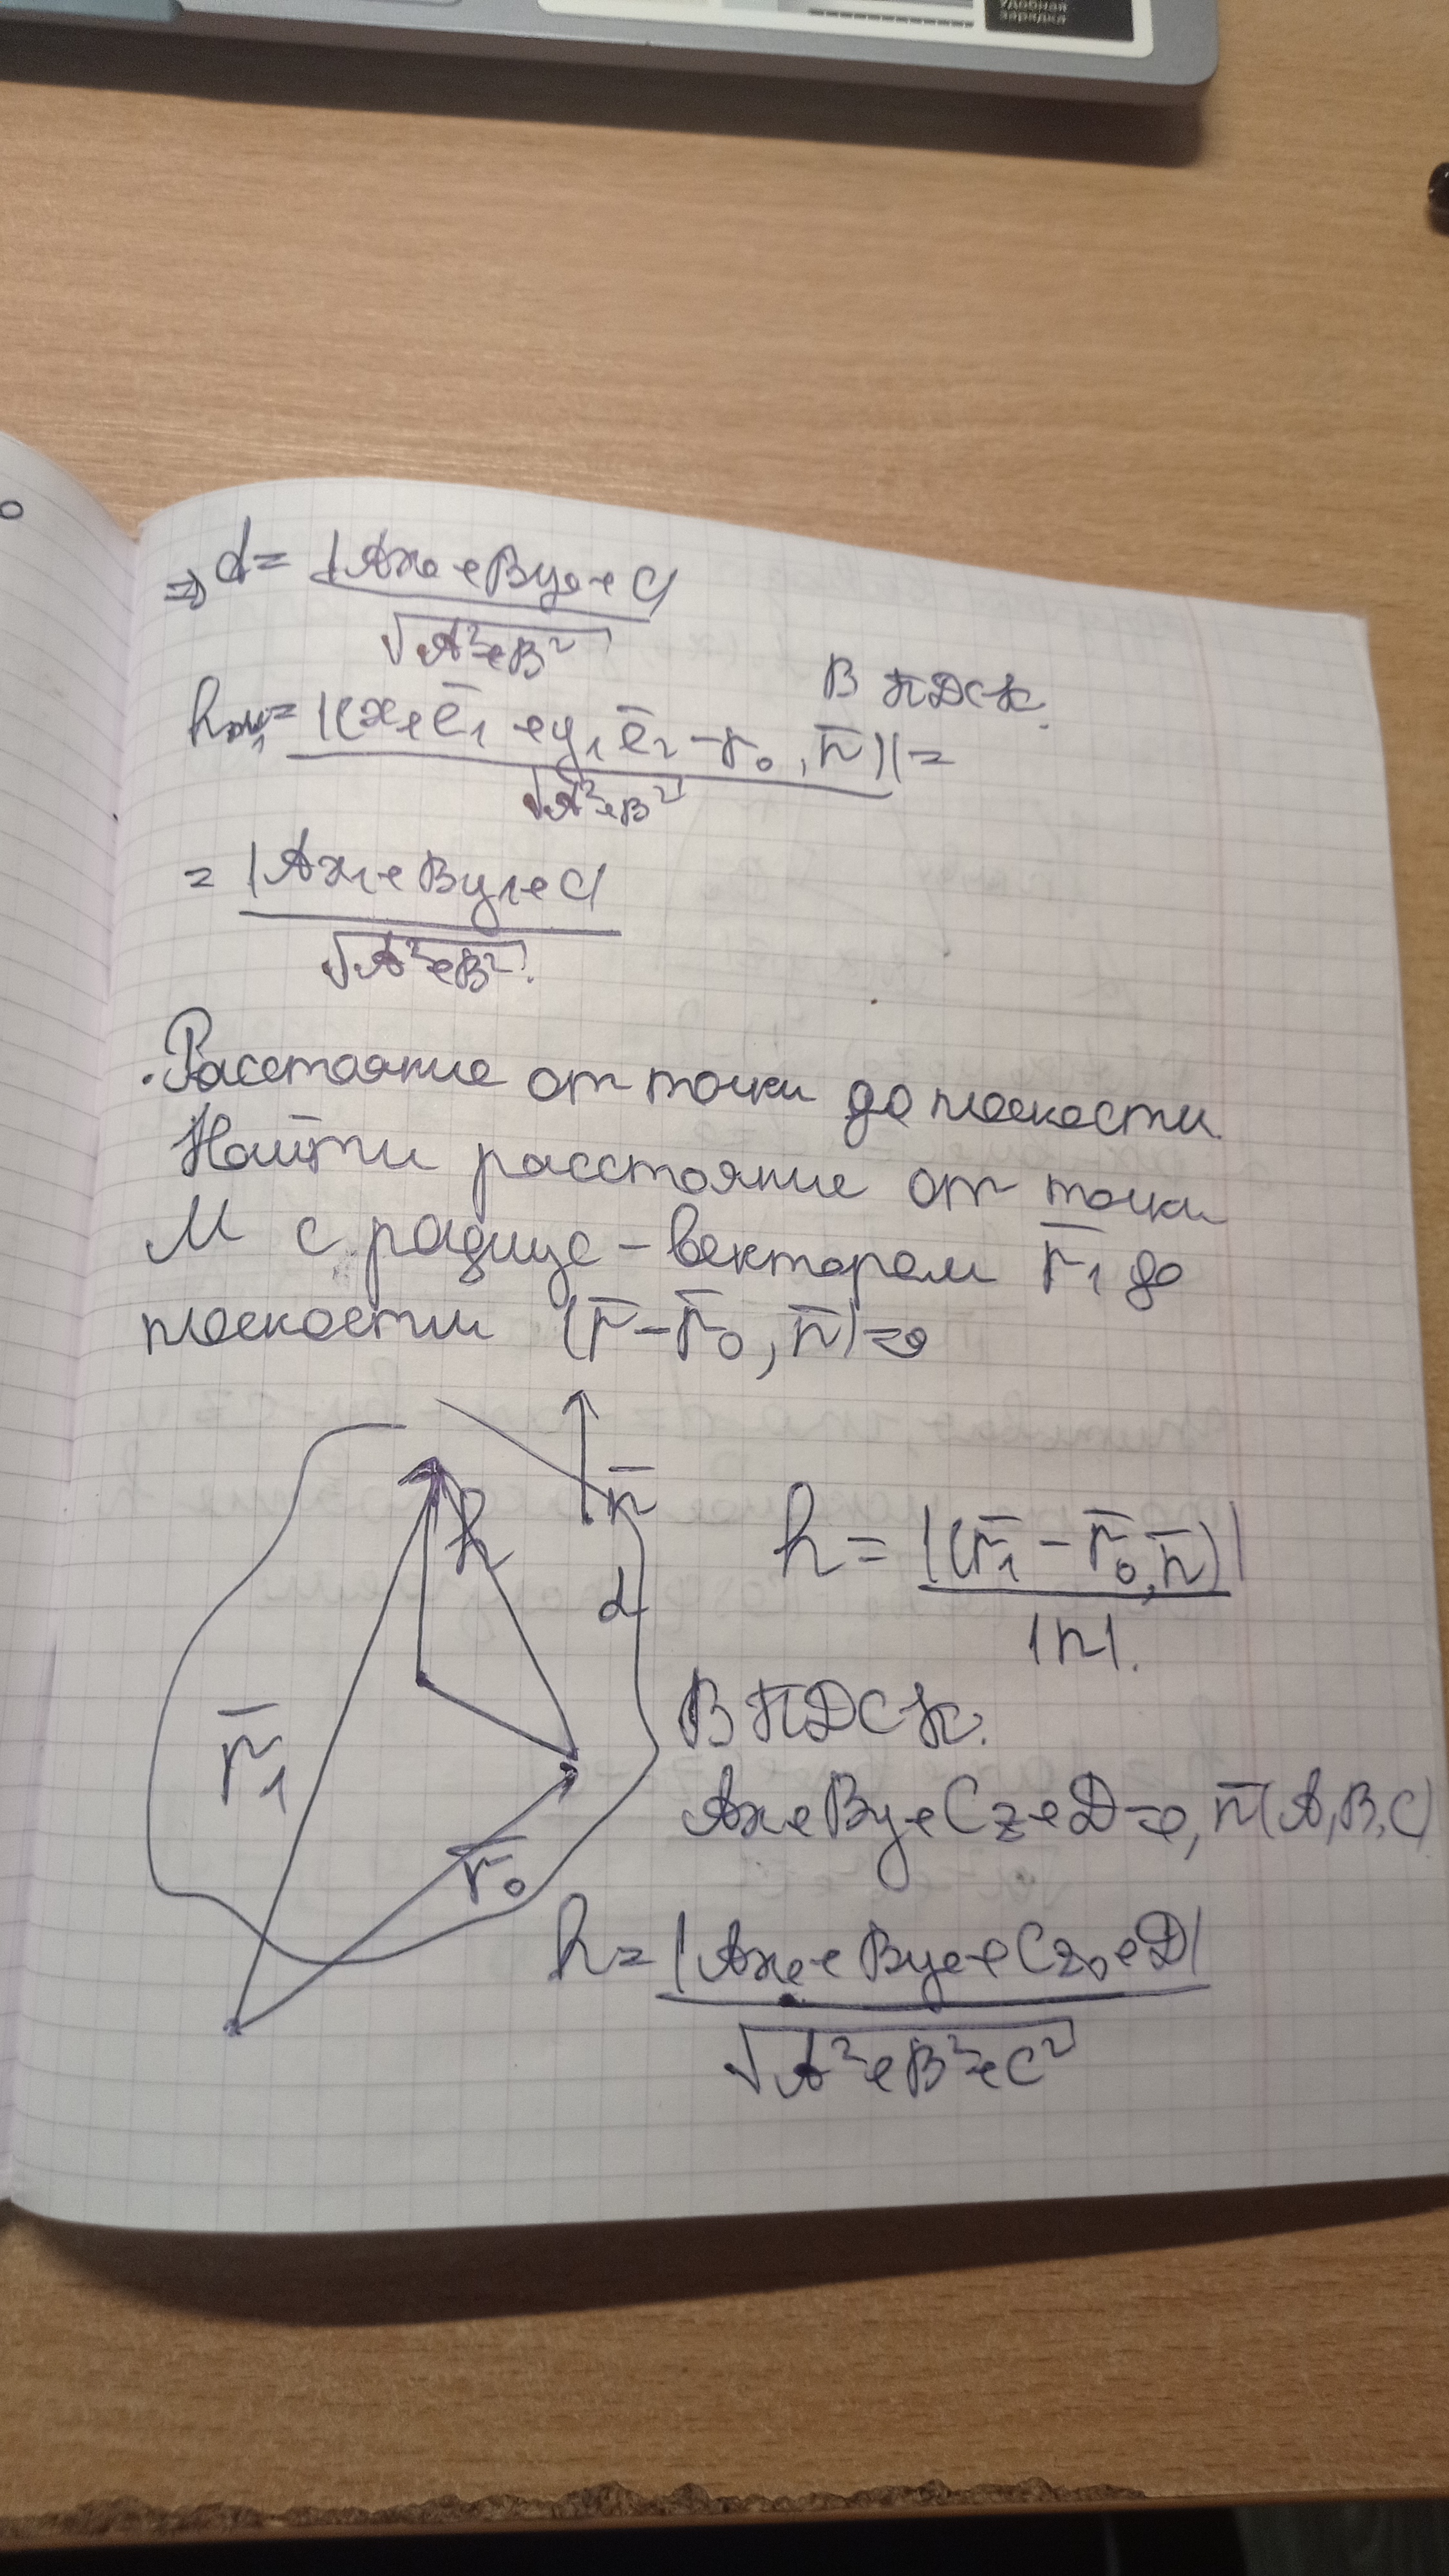 удобная
зарядка
⇒ d = |Ax₀ + By₀ + C|
√A² + B²
В ПДСК.
h = |(x₁ē₁ + y₁ē₂ - r₀, n̄)| =
√A² + B²
= |Ax₁ + By₁ + C|
√A² + B².
. Расстояние от точки до плоскости.
Найти расстояние от точки
М с радиус-вектором r̄₁ до
плоскости (r̄ - r̄₀, n̄) = 0
n̄
h
d
h = |(r̄₁ - r̄₀, n̄)|
|n|.
r̄₁
В ПДСК.
Ax + By + Cz + D = 0, n̄(A, B, C)
r̄₀
h = |Ax₀ + By₀ + Cz₀ + D|
√A² + B² + C²